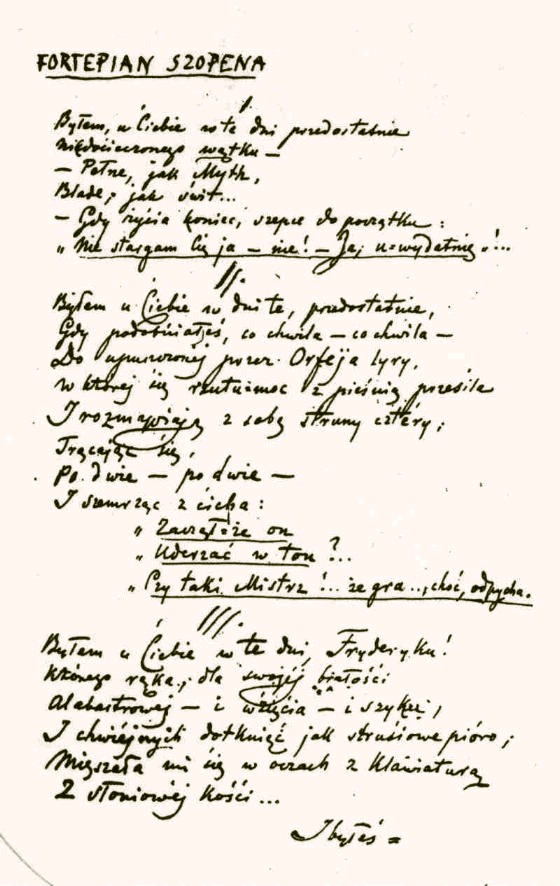 FORTEPIAN SZOPENA
I.
Byłem, u Ciebie w te dni przedostatnie
Niedocieczonego wątku —
— Pełne, jak Myth,
Blade, jak świt...
— Gdy życia koniec, szepce do początku:
„Nie stargam Cię ja — nie! — Ja, u=wydatnię”!...
II.
Byłem u Ciebie w dni te, przedostatnie,
Gdy podobniałeś, co chwila — co chwila —
Do upuszczonej przez Orfeja lyry,
W której się rzutu=moc z pieśnią przesila
I rozmawiają z sobą struny cztéry;
Trącając się,
Po dwie — po dwie —
I szemrząc z cicha:
„Zacząłże on
„Uderzać w ton?...
„Czy taki Mistrz!... że gra..., choć, odpycha.
III.
Byłem u Ciebie w te dni, Fryderyku!
Którego ręka, dla swojéj białości
Alabastrowéj — i wzięcia — i szyku,
I chwiejnych dotknięć jak strusiowe pióro;
Mięszała mi się w oczach z klawiaturą
Z słoniowéj kości...
I byłeś =